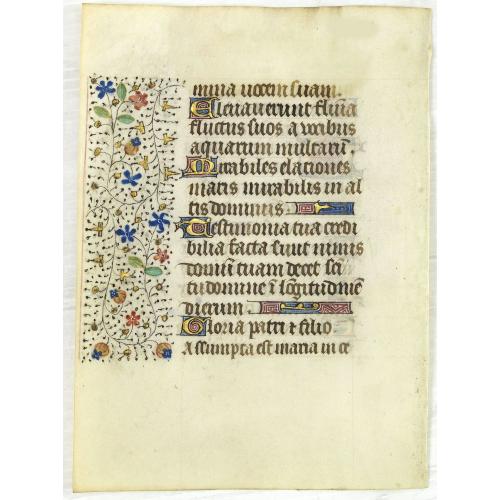 mina vocem suam.
Elevaverunt flumĩa
fluctus suos a vocibus
aquarum multarũ.
Mirabiles elationes
maris mirabilis in al
tis dominus.
Testimonia tua credi
bilia facta sunt nimis
domũ tuam decet sc̃i
tudo domine ĩ lõgitudinẽ
dierum.
Gloria patri ⁊ filio
Assumpta est maria in ce